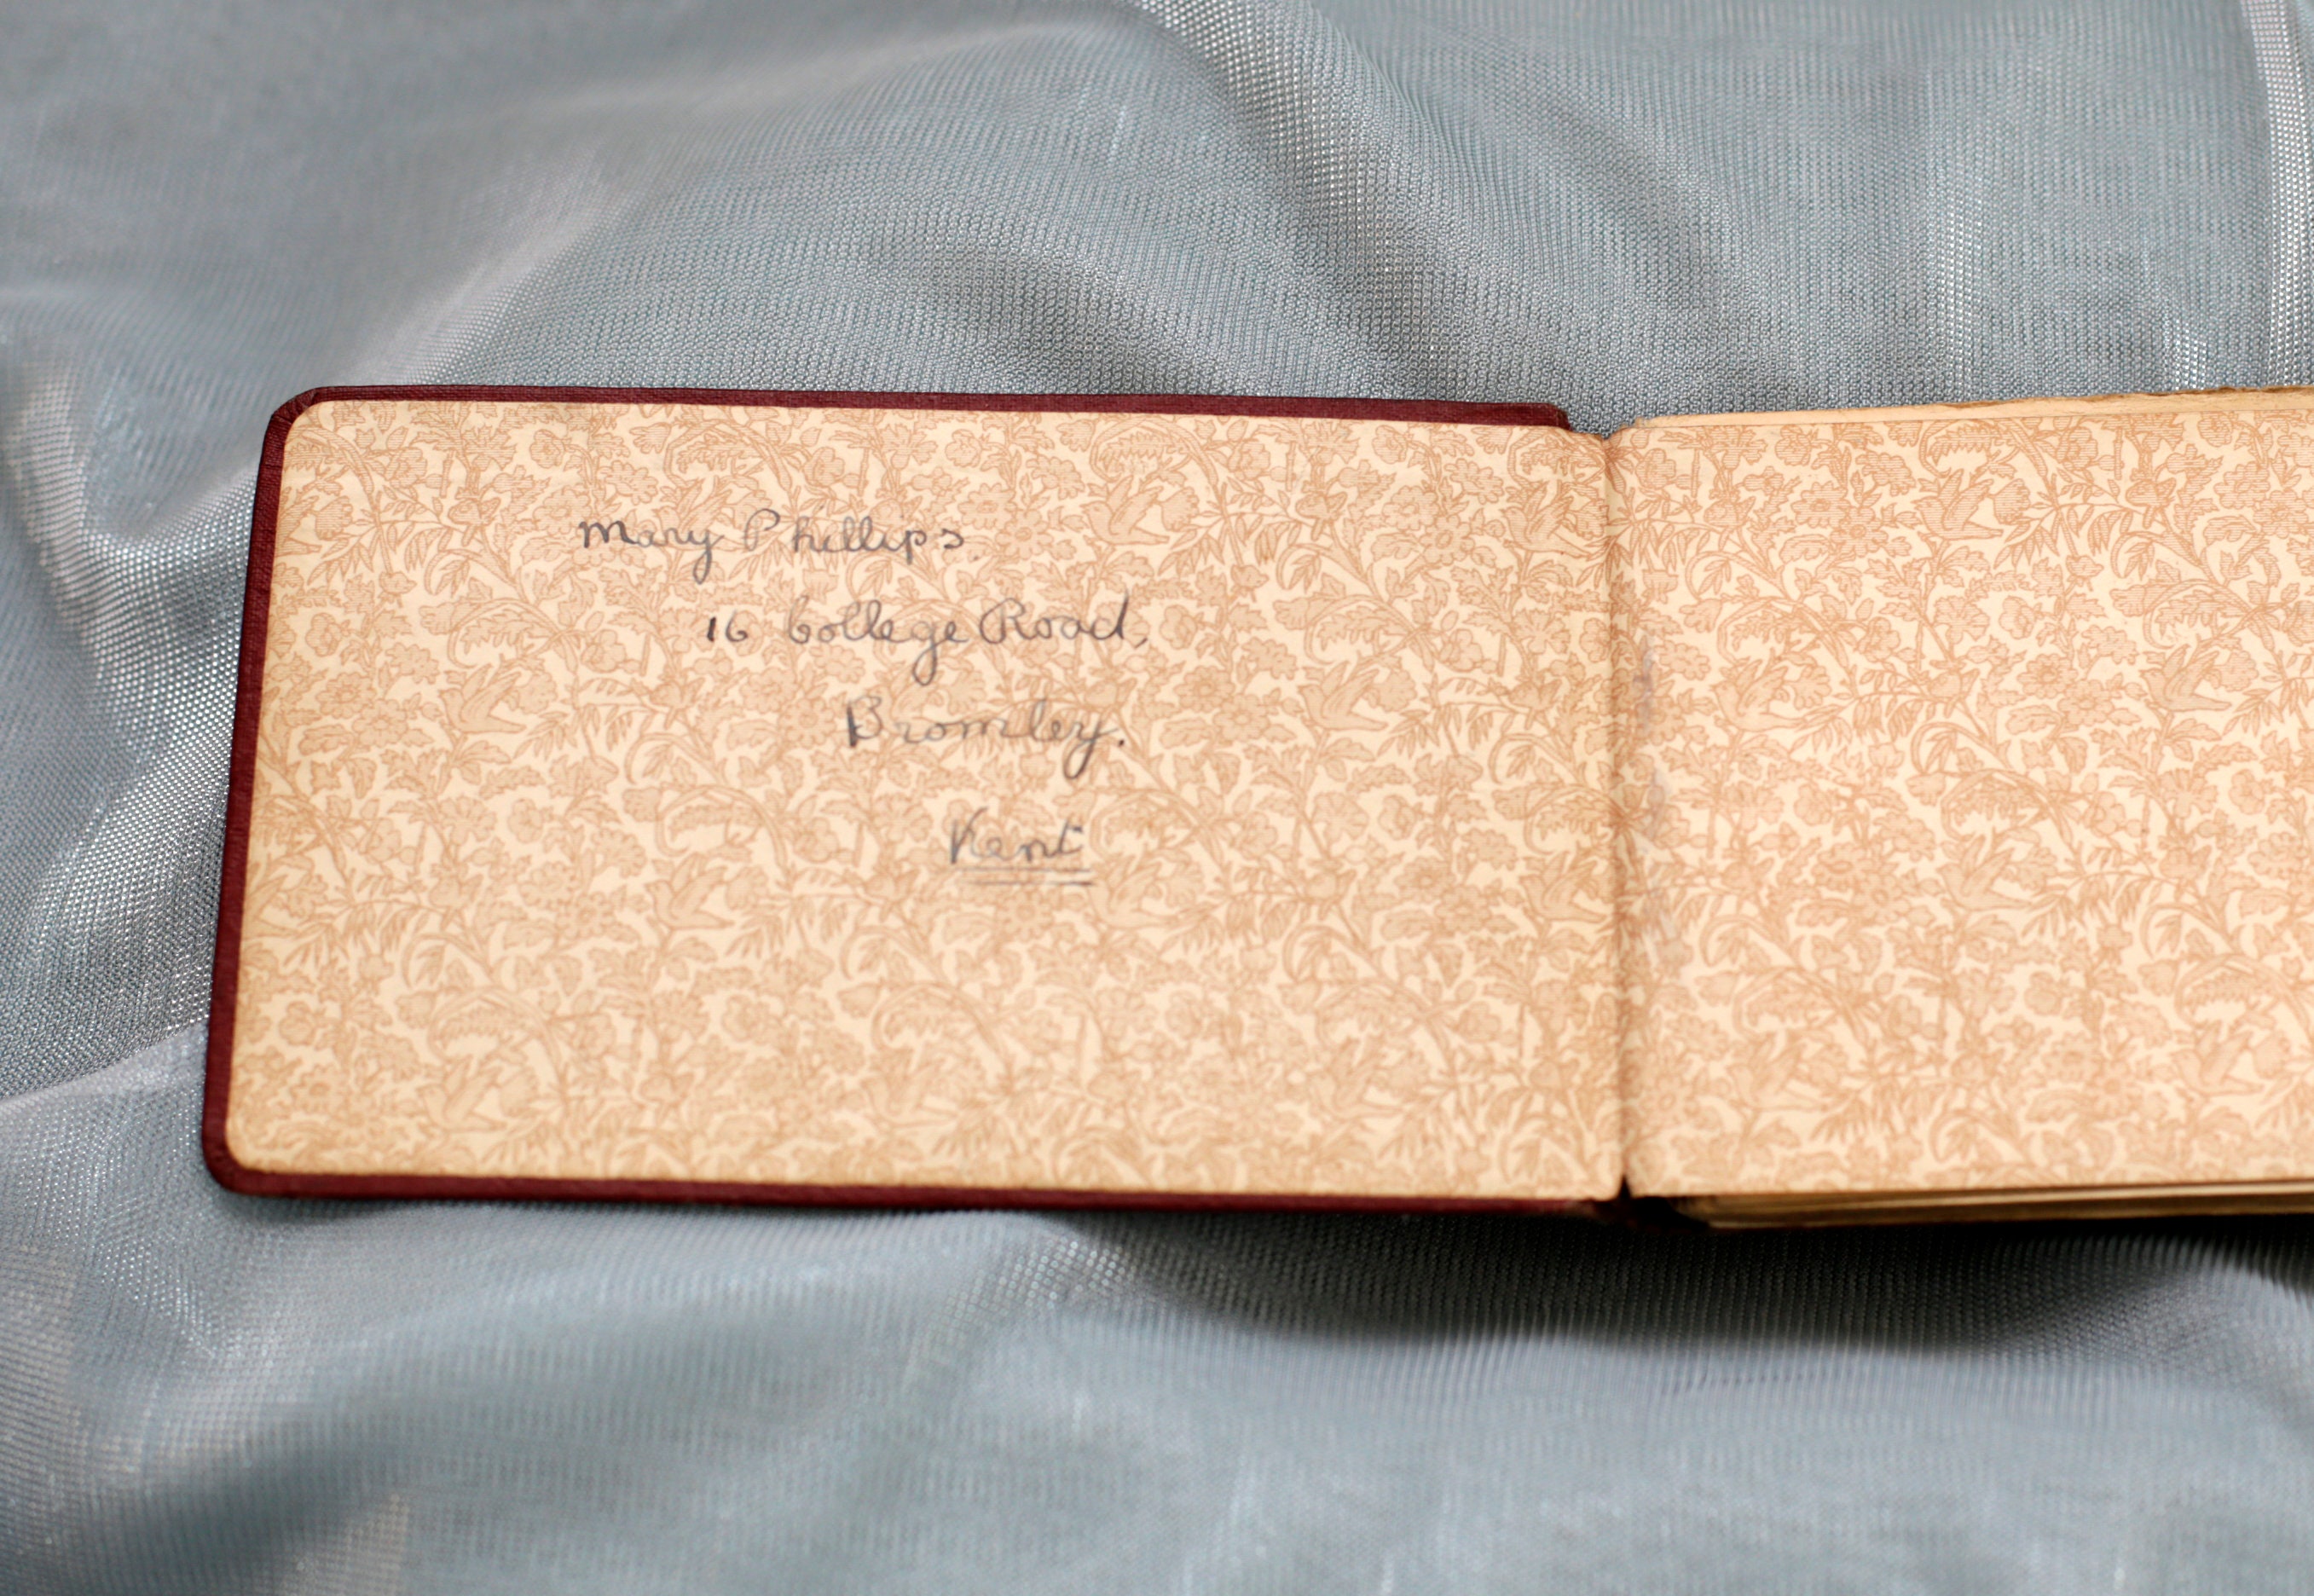 Mary Phillips.
16 College Road,
Bromley.
Kent